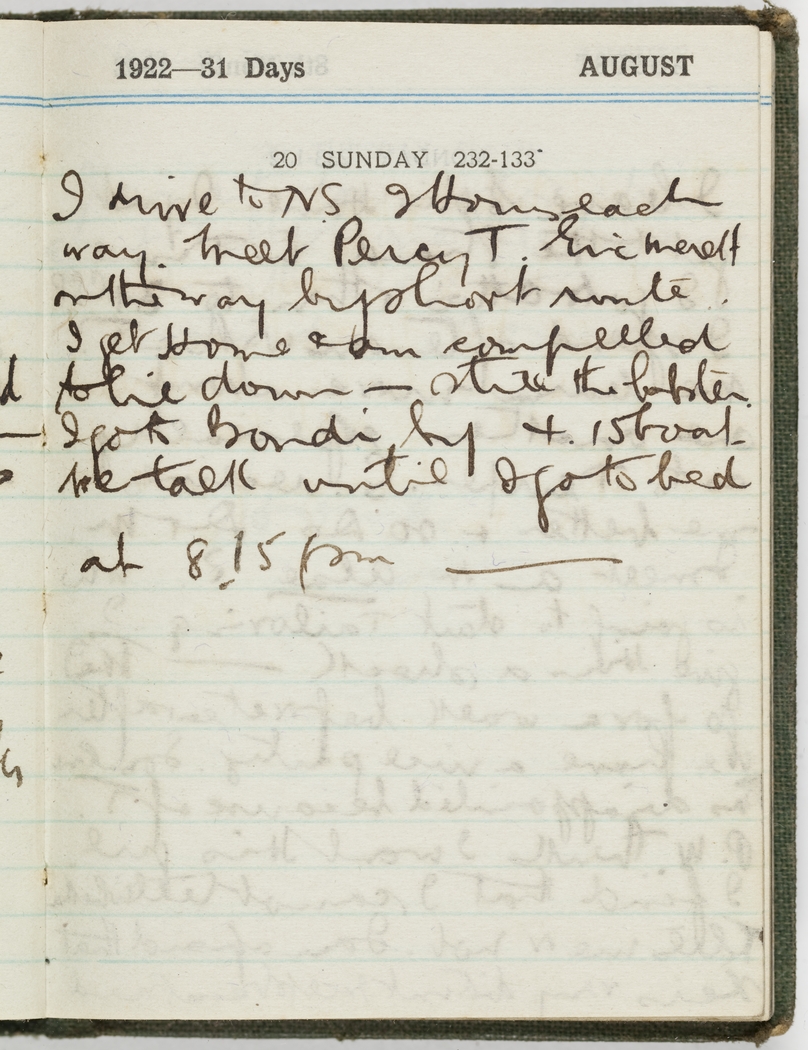 1922—31 Days AUGUST
20 SUNDAY 232-133
I drive to NS 2 Hours each
way. Meet Percy T. Eric Merett
on the way by short route.
I get Home & am compelled
to lie down — still the lobster.
I go to Bondi by 4.15 boat
We talk until I go to bed
at 8.15 pm —